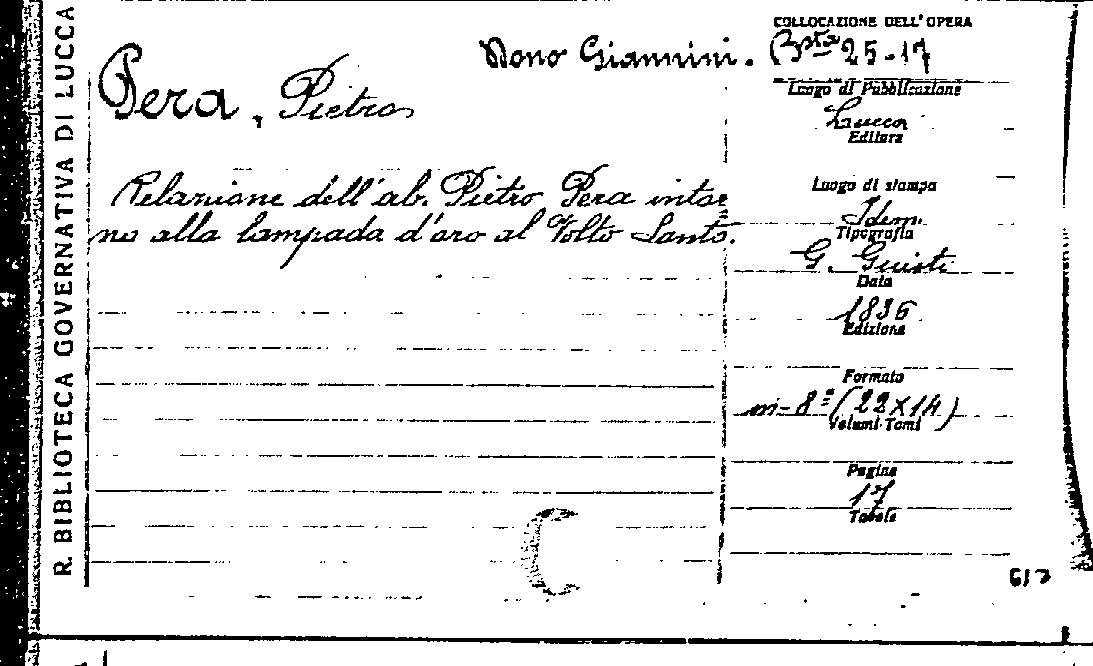 R. BIBLIOTECA GOVERNATIVA DI LUCCA
COLLOCAZIONE DELL'OPERA
Dono Giannini. Bsta 25-17
Pera, Pietro
Relazione dell'ab. Pietro Pera intor
no alla lampada d'oro al Volto Santo.
Luogo di Pubblicazione
Lucca
Editore
Luogo di stampa
Idem.
Tipografia
G. Giusti
Data
1836
Edizione
Formato
in-8º (22X14)
Volumi-Tomi
Pagine
17
Tavole